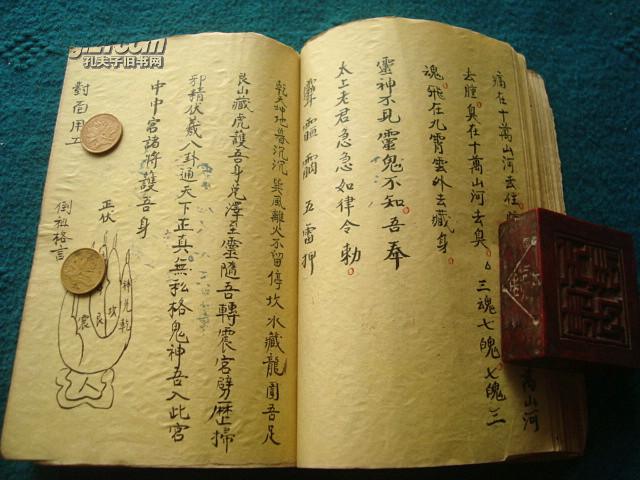 痛在十萬山河去住
去腫臭在十萬山河去臭 三魂七魄七魄三
魂飛在九霄雲外去藏身
靈神不見靈鬼不知吾奉
太上老君急急如律令勅
五雷押
乾天坤地雷沉沉巽風離火不留停坎水藏龍圍吾足
艮山藏虎護吾身兌澤至靈隨吾轉震宮劈歷掃
邪精伏羲八卦通天下正真無私格鬼神吾入此宮
中中宮諸將護吾身
對面用工
倒祖格言
正伏
坎
艮
震
乾
萬山河
孔夫子旧书网